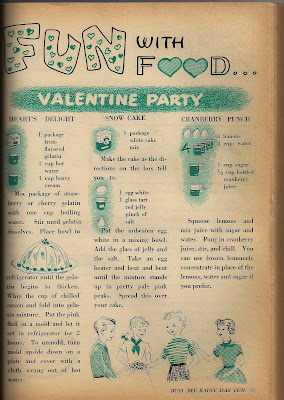 FUN WITH
FOOD...
VALENTINE PARTY
HEART'S DELIGHT
1 package
fruit
flavored
gelatin
1 cup hot
water
1 cup heavy
cream
Mix package of straw-
berry or cherry gelatin
with one cup boiling
water. Stir until gelatin
dissolves. Place bowl in
refrigerator until the gela-
tin begins to thicken.
Whip the cup of chilled
cream and fold into gela-
tin mixture. Put the pink
fluff in a mold and let it
set in refrigerator for 2
hours. To unmold, turn
mold upside down on a
plate and cover with a
cloth wrung out of hot
water.
SNOW CAKE
1 package
white cake
mix
Make the cake as the di-
rections on the box tell
you to.
1 egg white
1 glass tart
red jelly
pinch of
salt
Put the unbeaten egg
white in a mixing bowl.
Add the glass of jelly and
the salt. Take an egg
beater and beat and beat
until the mixture stands
up in pretty pale pink
peaks. Spread this over
your cake.
CRANBERRY PUNCH
lemons
cups water
1 cup sugar
½ cup bottled
cranberry
juice
Squeeze lemons and
mix juice with sugar and
water. Pour in cranberry
juice, stir, and chill. You
can use frozen lemonade
concentrate in place of the
lemons, water and sugar if
you prefer.
BUSY BEE RAINY DAY FUN